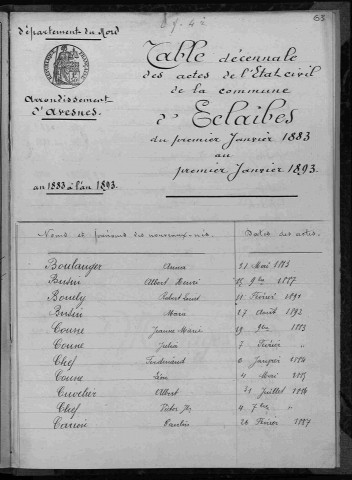 63
Département du Nord
Table décennale
des actes de l'Etat civil
de la commune
Arrondissement
d'Avesnes
d'Eclaibes
du premier Janvier 1883
au
premier Janvier 1893.
an 1883 à l'an 1893.
Noms et prénoms des nouveaux-nés. Dates des actes.
Boulanger Anna 31 Mai 1883
Busin Albert Henri 9bre 1887
Bouly Robert 11 Février 1891
Busin Marie 27 Août 1892
Cousne Jeanne Marie 19 9bre 1883
Cousne Julia 7 Février "
Chef Ferdinand 6 Janvier 1884
Cousne 4 Mai 1885
Cuvelier Albert 21 Juillet 1886
Chef Victor Jh 4 7bre "
26 Février 1887